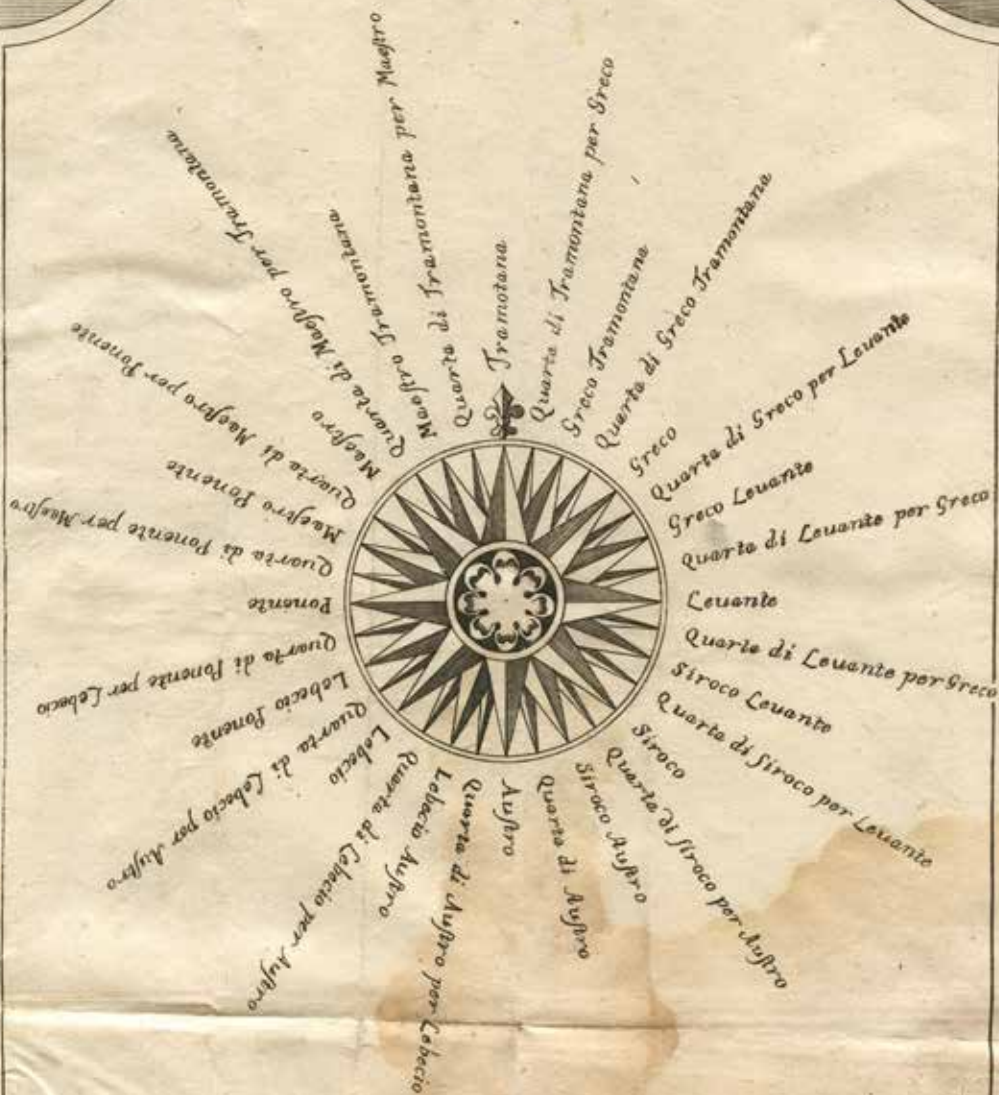 Tramotana
Quarta di Tramontana per Greco
Greco Tramontana
Quarta di Greco Tramontana
Greco
Quarta di Greco per Leuante
Greco Leuante
Quarta di Leuante per Greco
Leuante
Quarta di Leuante per Greco
Siroco Leuante
Quarta di Siroco per Leuante
Siroco
Quarta di Siroco per Austro
Siroco Austro
Quarta di Austro
Austro
Quarta di Austro per Lebecio
Lebecio Austro
Quarta di Lebecio per Austro
Lebecio
Quarta di Lebecio per Austro
Lebecio Ponente
Quarta di Ponente per Lebecio
Ponente
Quarta di Ponente per Maestro
Maestro Ponente
Quarta di Maestro per Ponente
Maestro
Quarta di Maestro per Tramontana
Maestro Tramontana
Quarta di Tramontana per Maestro